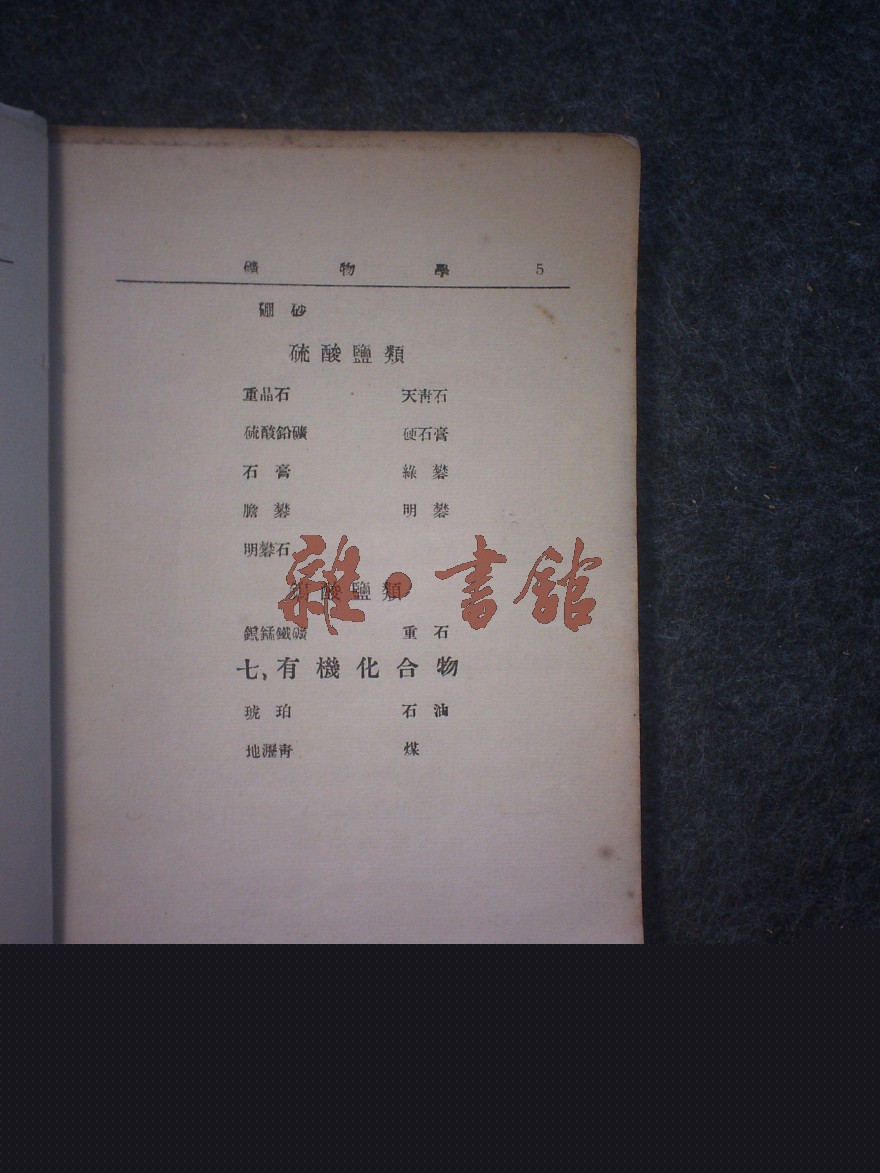 礦物學 5
硼砂
硫酸鹽類
重品石 天青石
硫酸鉛礦 硬石膏
石膏 綠礬
膽礬 明礬
明礬石
雜·書館
酸鹽類
錳鐵礦 重石
七、有機化合物
琥珀 石油
地瀝青 煤